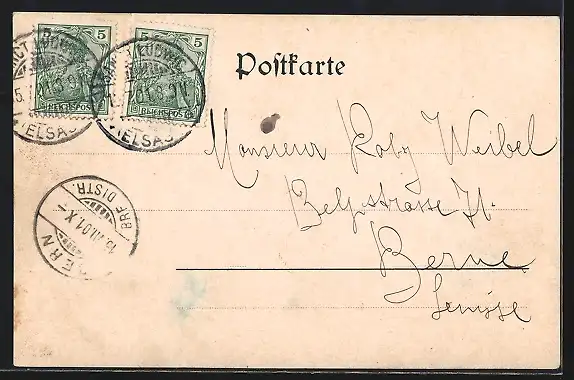 5 5
REICHSPOST REICHSPOST
SANCT LUDWIG
(ELSASS)
SANCT LUDWIG
(ELSASS)
Postkarte
Monsieur Roby Weibel
Belpstrasse 71.
Berne
Suisse
BERN
15.VII.01.X-
BRF DISTR.